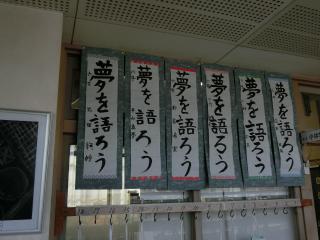 夢を語ろう
夢を語ろう
夢を語ろう
夢を語ろう
夢を語ろう
夢を語ろう